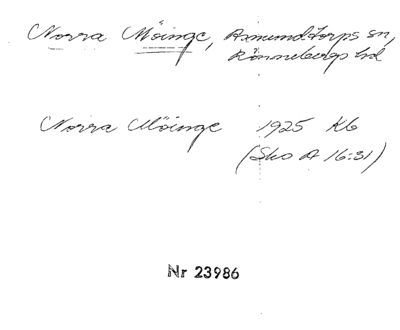 Norra Möinge, Asmundtorps sn,
Rönnebergs hd
Norra Möinge 1925 Kb
(Sko A 16:31)
Nr 23986